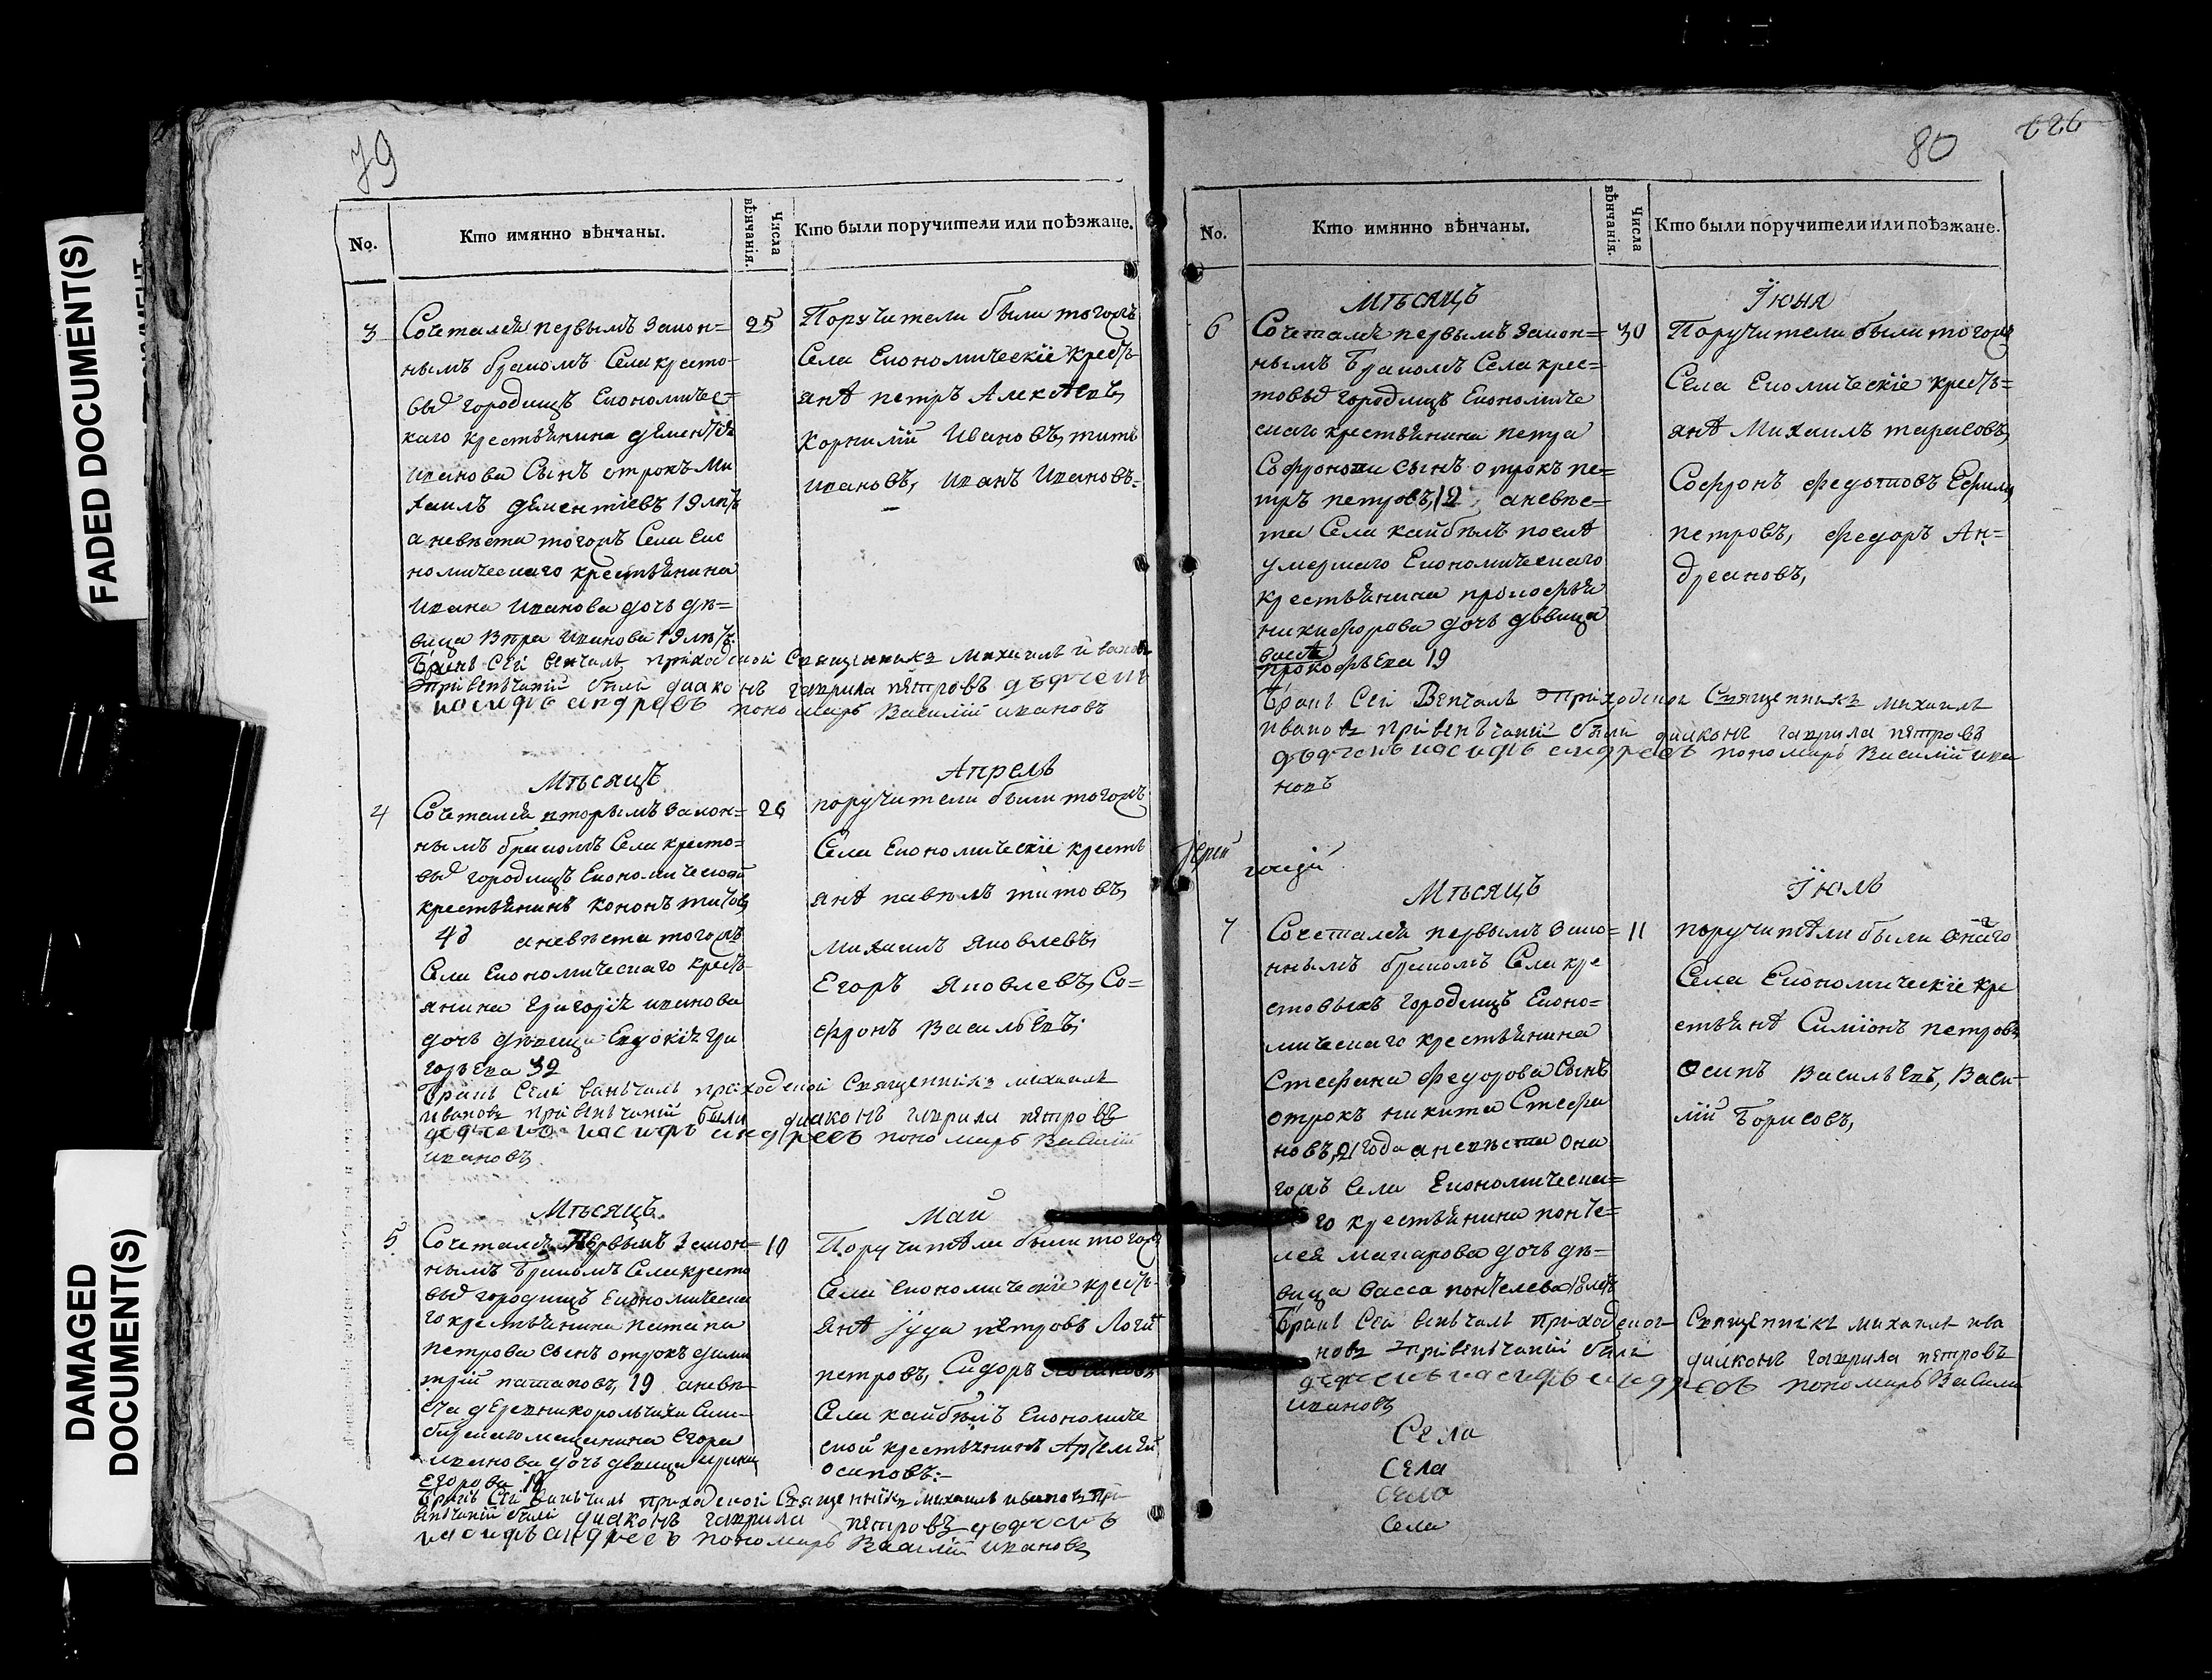 FADED DOCUMENT(S)
DAMAGED
DOCUMENT(S)
79
No.
Кто имянно вѣнчаны.
Числа
вѣнчанія.
Кто были поручители или поѣзжане.
3
Сочетался первымъ закон=
25
нымъ бракомъ Села кресто-
выхъ городищъ Економичес=
каго крестьянина дементія
иванова Сынъ отрокъ Ми
хаилъ дементіевъ 19 лѣтъ
а невѣста тогожъ Села Еко
номическаго крестьянина
ивана иванова дочь дѣ=
вица иванова 19 лѣтъ
Поручители были тогожъ
Села Економическіе крест
янѣ петръ Алексѣевъ
корнилій Ивановъ, титъ
ивановъ, иванъ Ивановъ=
Бракъ Сей венчалъ приходской Священникъ Михаилъ ивановъ
привѣнчаніи были диаконъ гаврила пѣтровъ дьячекъ
иосифъ андреевъ пономарь Василий ивановъ
Мѣсяцъ
Апрель
4
Сочетался вторымъ закон=
26
нымъ бракомъ Села кресто=
выхъ городищъ Економической
крестьянинъ кононъ титовъ
40 а невѣста тогожъ
Села Економическаго крест-
янина Григорія иванова
дочь дѣвица Евдокія гри
горьева 32
поручители были тогожъ
Села Економическіе кресть
янѣ павелъ титовъ,
михаилъ Яковлевъ,
Егоръ Яковлевъ, Со=
фронъ Васильевъ,
Бракъ Сей ваньчалъ приходской Священникъ михаилъ
ивановъ привѣнчаніи были диаконъ гаврила пѣтровъ
дьячекъ иасифъ андреевъ пономарь Василий
ивановъ
Мѣсяцъ
Май
5
Сочетался Первымъ закон=
10
нымъ Бракомъ Села кресто
выхъ городищъ Економическа
го крестьянина патапа
петрова сынъ отрокъ дими
трій патаповъ, 19 а невѣ-
ста деревни корольчихи Сим-
бирскаго мещанина Егора
иванова дочь дѣвица ирина
Егорова 18
Поручители были тогожъ
Села Економическіе крест-
янѣ Іуда пѣтровъ Логи
петровъ, Сидоръ
Села кайбѣлъ Економиче
ской крестьянинъ Артемей
осиповъ:-
Бракъ Сей ваньчалъ приходской Священникъ михаилъ ивановъ при
венчаніи были диаконъ гаврила пѣтровъ дьячекъ
иасифъ андреевъ пономарь Василий ивановъ
626
80
No.
Кто имянно вѣнчаны.
Числа
вѣнчанія.
Кто были поручители или поѣзжане.
Мѣсяцъ
Іюня
6
Сочетался первымъ закон=
30
нымъ Бракомъ Села крес=
товыхъ городищъ Економиче
скаго крестьянина петра
Софронова сынъ отрокъ пе=
тръ петровъ, 19 а невѣс=
та Села кайбѣлъ послѣ
умершаго Економическаго
крестьянина прокофья
никифорова дочь дѣвица
прокофьева 19
Поручители были тогожъ
Села Екомическіе крестъ=
янѣ Михаилъ тарасовъ,
Софронъ федотовъ
петровъ, федоръ Ан=
дреановъ,
Бракъ Сей Венчалъ приходской Священникъ михаилъ
ивановъ привенѣчаніи были диаконъ гаврила пѣтровъ
дьячекъ иасифъ андреевъ пономарь Василий ива
новъ
іерей
Мѣсяцъ
Іюль
7
Сочетался первымъ зако=
11
ннымъ бракомъ Села кре
стовыхъ городищъ Еконо=
мическаго крестьянина
Стефана федорова Сынъ
отрокъ никита Стефа
новъ, 21 года а невѣста она
гожъ Села Економическа=
го крестьянина понте=
лея макарова дочь дѣ=
вица васса понтелева 18 лѣтъ
поручители были онаго
Села Економическіе кре
стьянѣ Симіонъ петровъ,
Осипъ Васильевъ, Васи-
лій Борисовъ,
Бракъ Сей венчалъ приходской Священникъ михаилъ ива
новъ привенѣчаніи были диаконъ гаврила пѣтровъ
дьячекъ иасифъ андреевъ пономарь Василий
ивановъ
Села
Села
Села
Села